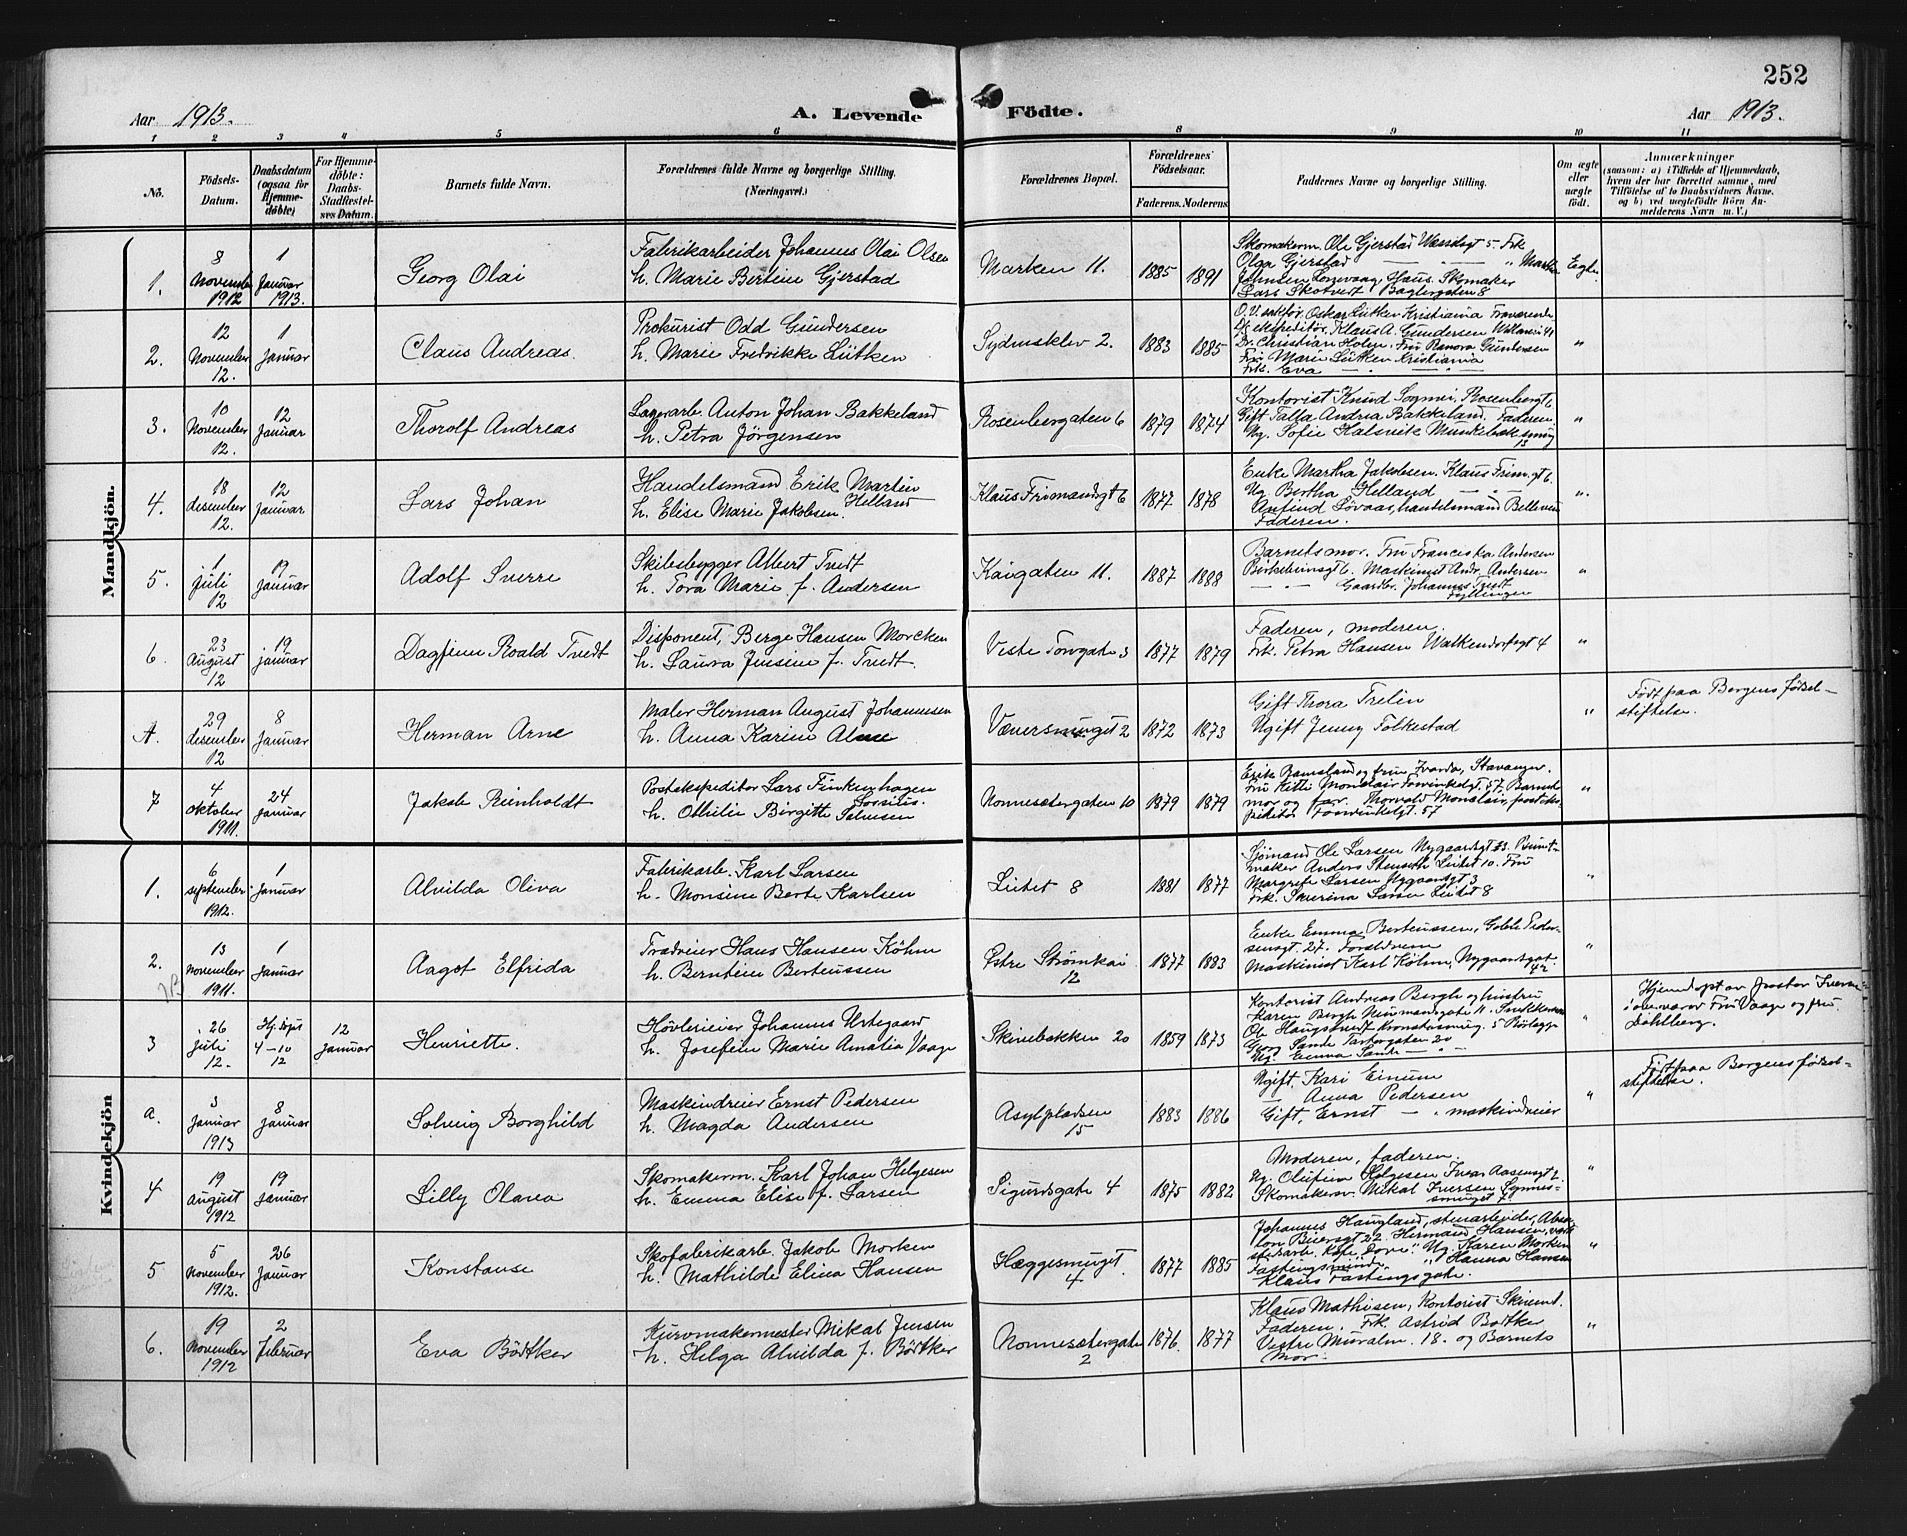 252
Aar 1913.
A. Levende Födte.
Aar 1913.
1 2 3 4 5 6 8 9 10 11
No.
Födsels-Datum.
Daabsdatum (ogsaa for Hjemme-døbte)
For Hjemme-döbte: Daabs-Stadfæstel-ses Datum.
Barnets fulde Navn.
Forældrenes fulde Navne og borgerlige Stilling. (Næringsvei.)
Forældrenes Bopæl.
Forældrenes Födselsaar.
Faderens. Moderens
Faddernes Navne og borgerlige Stilling.
Om ægte eller uægte födt.
Anmærkninger
(saasom: a) i Tilfælde af Hjemmedaab, hvem der har forrettet samme, med Tilföielse af to Daabsvidners Navne, og b) ved uegtefödte Börn An-melderens Navn m. V.)
Mandkjön.
1. 8 November 1912 1 Januar 1913. Georg Olai
Fabrikarbeider Johannes Olai Olsen
h. Marie Bertine Gjerstad
Marken 11. 1885 1891
Skomakerm. Ole Gjerstad 5 Frk
Olga Gjerstad
Haus. Skomaker
Lars Skotvedt Baglergaten 8
Egte
2. 12 November 12. 1 Januar Claus Andreas.
Prokurist Odd Gundersen
h. Marie Fredrikke Lütken
Sydnesklev 2. 1883 1885
Oskar Lütken Kristiania
Klaus A. Gundersen
Dr. Christian Holm. Fru Ranora Gundersen
Fru Marie Lütken Kristiania
Frk. Eva — " —
"
3. 10 November 12. 12 Januar Thorolf Andreas
Lagerarb. Anton Johan Bakkeland
h. Petra Jörgensen
Rosenbergaten 6 1879 1874
Kontorist Knud Sognnes, Rosenbergt 6
Gift Talla Andrea Bakkeland, Faderen.
Ug. Sofie Halsvik
"
4. 18 desember 12. 12 Januar Lars Johan
Handelsmand Erik Martin Helland
h. Elise Marie Jakobsen
Klaus Frimandsgt 6 1877 1878
Enke Martha Jakobsen. Klaus Frim.gt 6.
Ug. Bertha Helland — —
Anfind Lövaas, handelsmand
Faderen.
"
5. 1 juli 12 19 Januar Adolf Sverre
Skibsbygger Albert Tvedt
h. Tora Marie f. Andersen
Kaigaten 11. 1887 1888
Barnets mor. Fru Franciska Andersen
Birkebeinsgt 6. Maskinist Andr. Andersen
— " — Gaardbr. Johannes Tvedt
Fyllingen
"
6. 23 August 12 19 januar Dagfinn Roald Tvedt
Disponent, Berge Hansen Morcken
h. Laura Jensine f. Tvedt.
Vestre Torvgate 3 1877 1879
Faderen, moderen.
Frk. Petra Hansen Walkendorfsgt 4
"
A. 29 desember 12 8 Januar Herman Arne
Maler Herman August Johannesen
h. Anna Karine
2 1872 1873
Gift Thora Trelin
Ugift Jenny Folkestad
"
Født paa Bergens fødsel-
stiftelse.
7 4 oktober 1911. 24 januar Jakob Reinholdt
Postekspeditör Lars Finkenhagen
h. Othilie Birgitte Salvesen
Nonnesætergaten 10 1879 1879
Erik og fru Stavanger.
Barnets
mor og far. Thorvald Monclair, posteks-
57
"
Kvindekjön
1. 6 september 1912. 1 januar Alvilda Oliva
Fabrikarb. Karl Larsen
h. Monsine Berte Karlsen
Lütet 8 1881 1877
Sjömand Ole Larsen Nygaardsgt
maker Anders 10. Fru
Margrete Larsen Nygaardsgt 3
Frk. Severina Larsen 8
"
2. 13 november 1911. 1 Januar Aagot Elfrida
NB
Traadreier Hans Hansen Köhm
h. Berntine Berteussen
Østre Strømkai 12 1877 1883
Enke Emma Berteussen, Peder-
sensgt. 27. Forældrene
Maskinist Karl Köhm, Nygaardsgat
42.
"
3 26 Juli 12. Hj. døpt 4-10 12 12 januar Henriette.
Høvlerieier Johannes Urtegaard
h. Josefine Marie Amalia Vaage
Skivebakken 20 1859 1873
Kontorist Andreas Bergh og hustru
Karen Bergh Neumandsgate 11. Snikkerm
Ol. Haugstvedt 5
Georg Sande 20
Ug. Emma Sande — " —
"
Hjemdøpt av pastor
overvær av Fru Vaage og fru
Dahlberg.
a. 3 Januar 1913 8 januar Solveig Borghild
Maskindreier Ernst Pedersen
h. Magda Andersen
Asylpladsen 15 1883 1886
Ugift, Kari Einum
— Anna Pedersen
Gift, Ernst — " maskindreier
"
Født paa Bergens fødsel-
stiftelse.
4 19 August 1912 19 Januar Lilly Olava
Skomakerm. Karl Johan Helgesen
h. Emma Elise f. Larsen
Sigurdsgate 4 1875 1882
Moderen, faderen.
Ug. Olufine Helgesen Ivar Aasensgt 2.
Skomakersv. Mikal Iversen
"
5 5 November 1912. 26 Januar Konstanse
Skofabrikarb. Jakob Morken
h. Mathilde Elina Hansen
Hæggesmuget 4 1877 1885
Johannes Haugland, stenarbeider,
22. Hermand Hansen,
Ug. Karen Morken
" Hanna Hansen
Klaus
"
6. 19 November 1912 2 Februar Eva Bödtker
Kurvmakermester Mikal Jensen
h. Helga Alvilda f. Bödtker
Nonnesætergate 2 1876. 1877
Klaus Mathisen, Kontorist
Faderen. Frk. Astrid Bödtker
Vestre Muralm. 18. og Barnets
Mor.
"